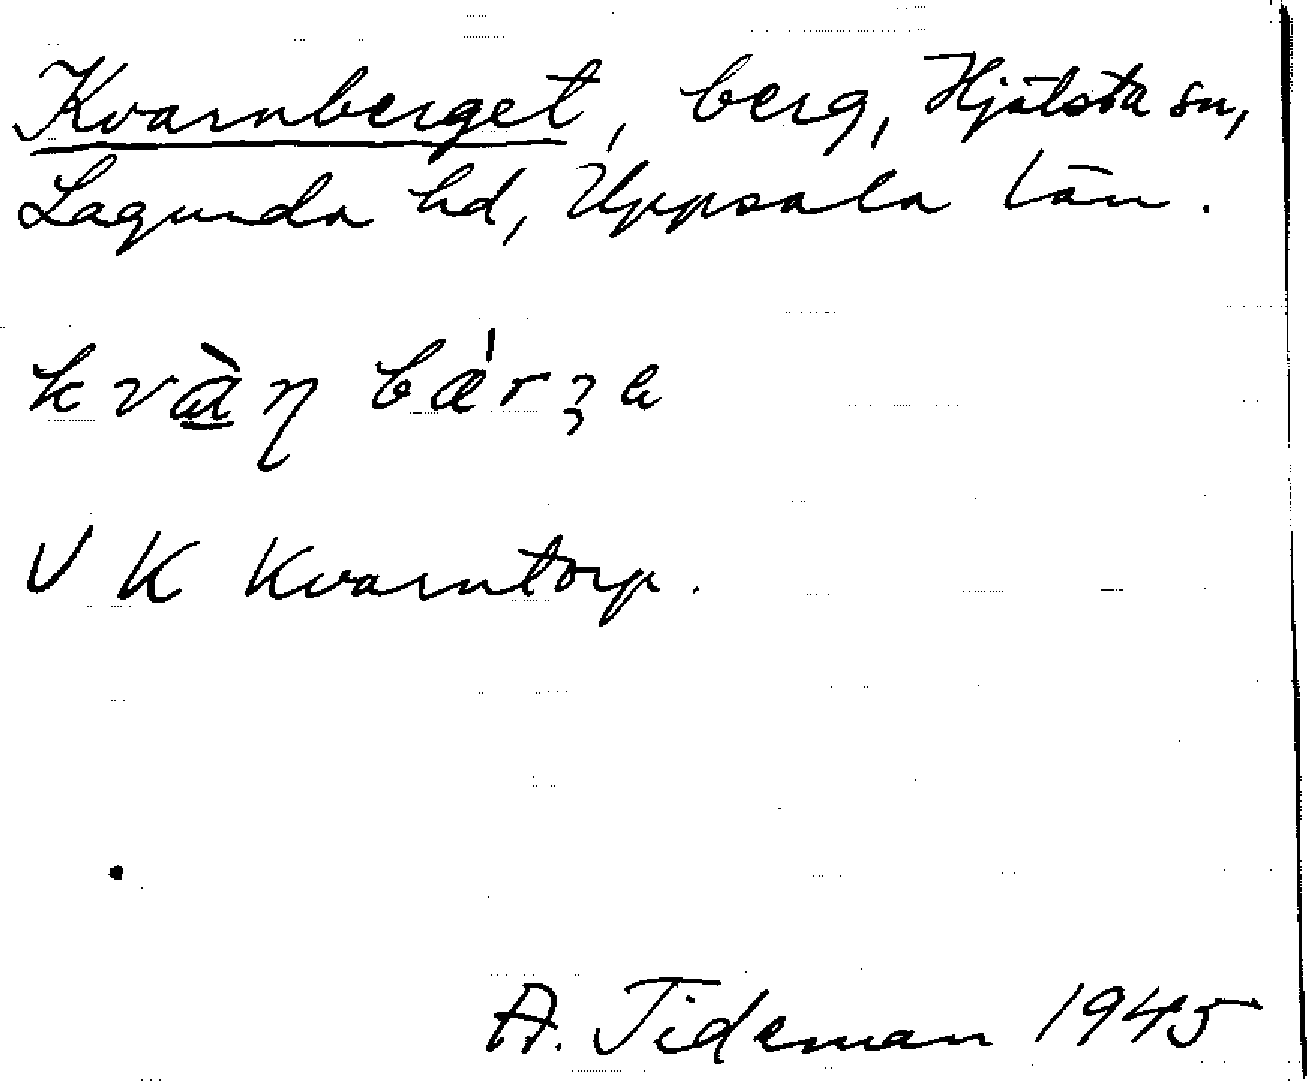 Kvarnberget, berg, Hjälsta sn,
Lagunda hd, Uppsala län.
kvàṇ bǽrʒe
V K Kvarntorp.
A. Tideman 1945